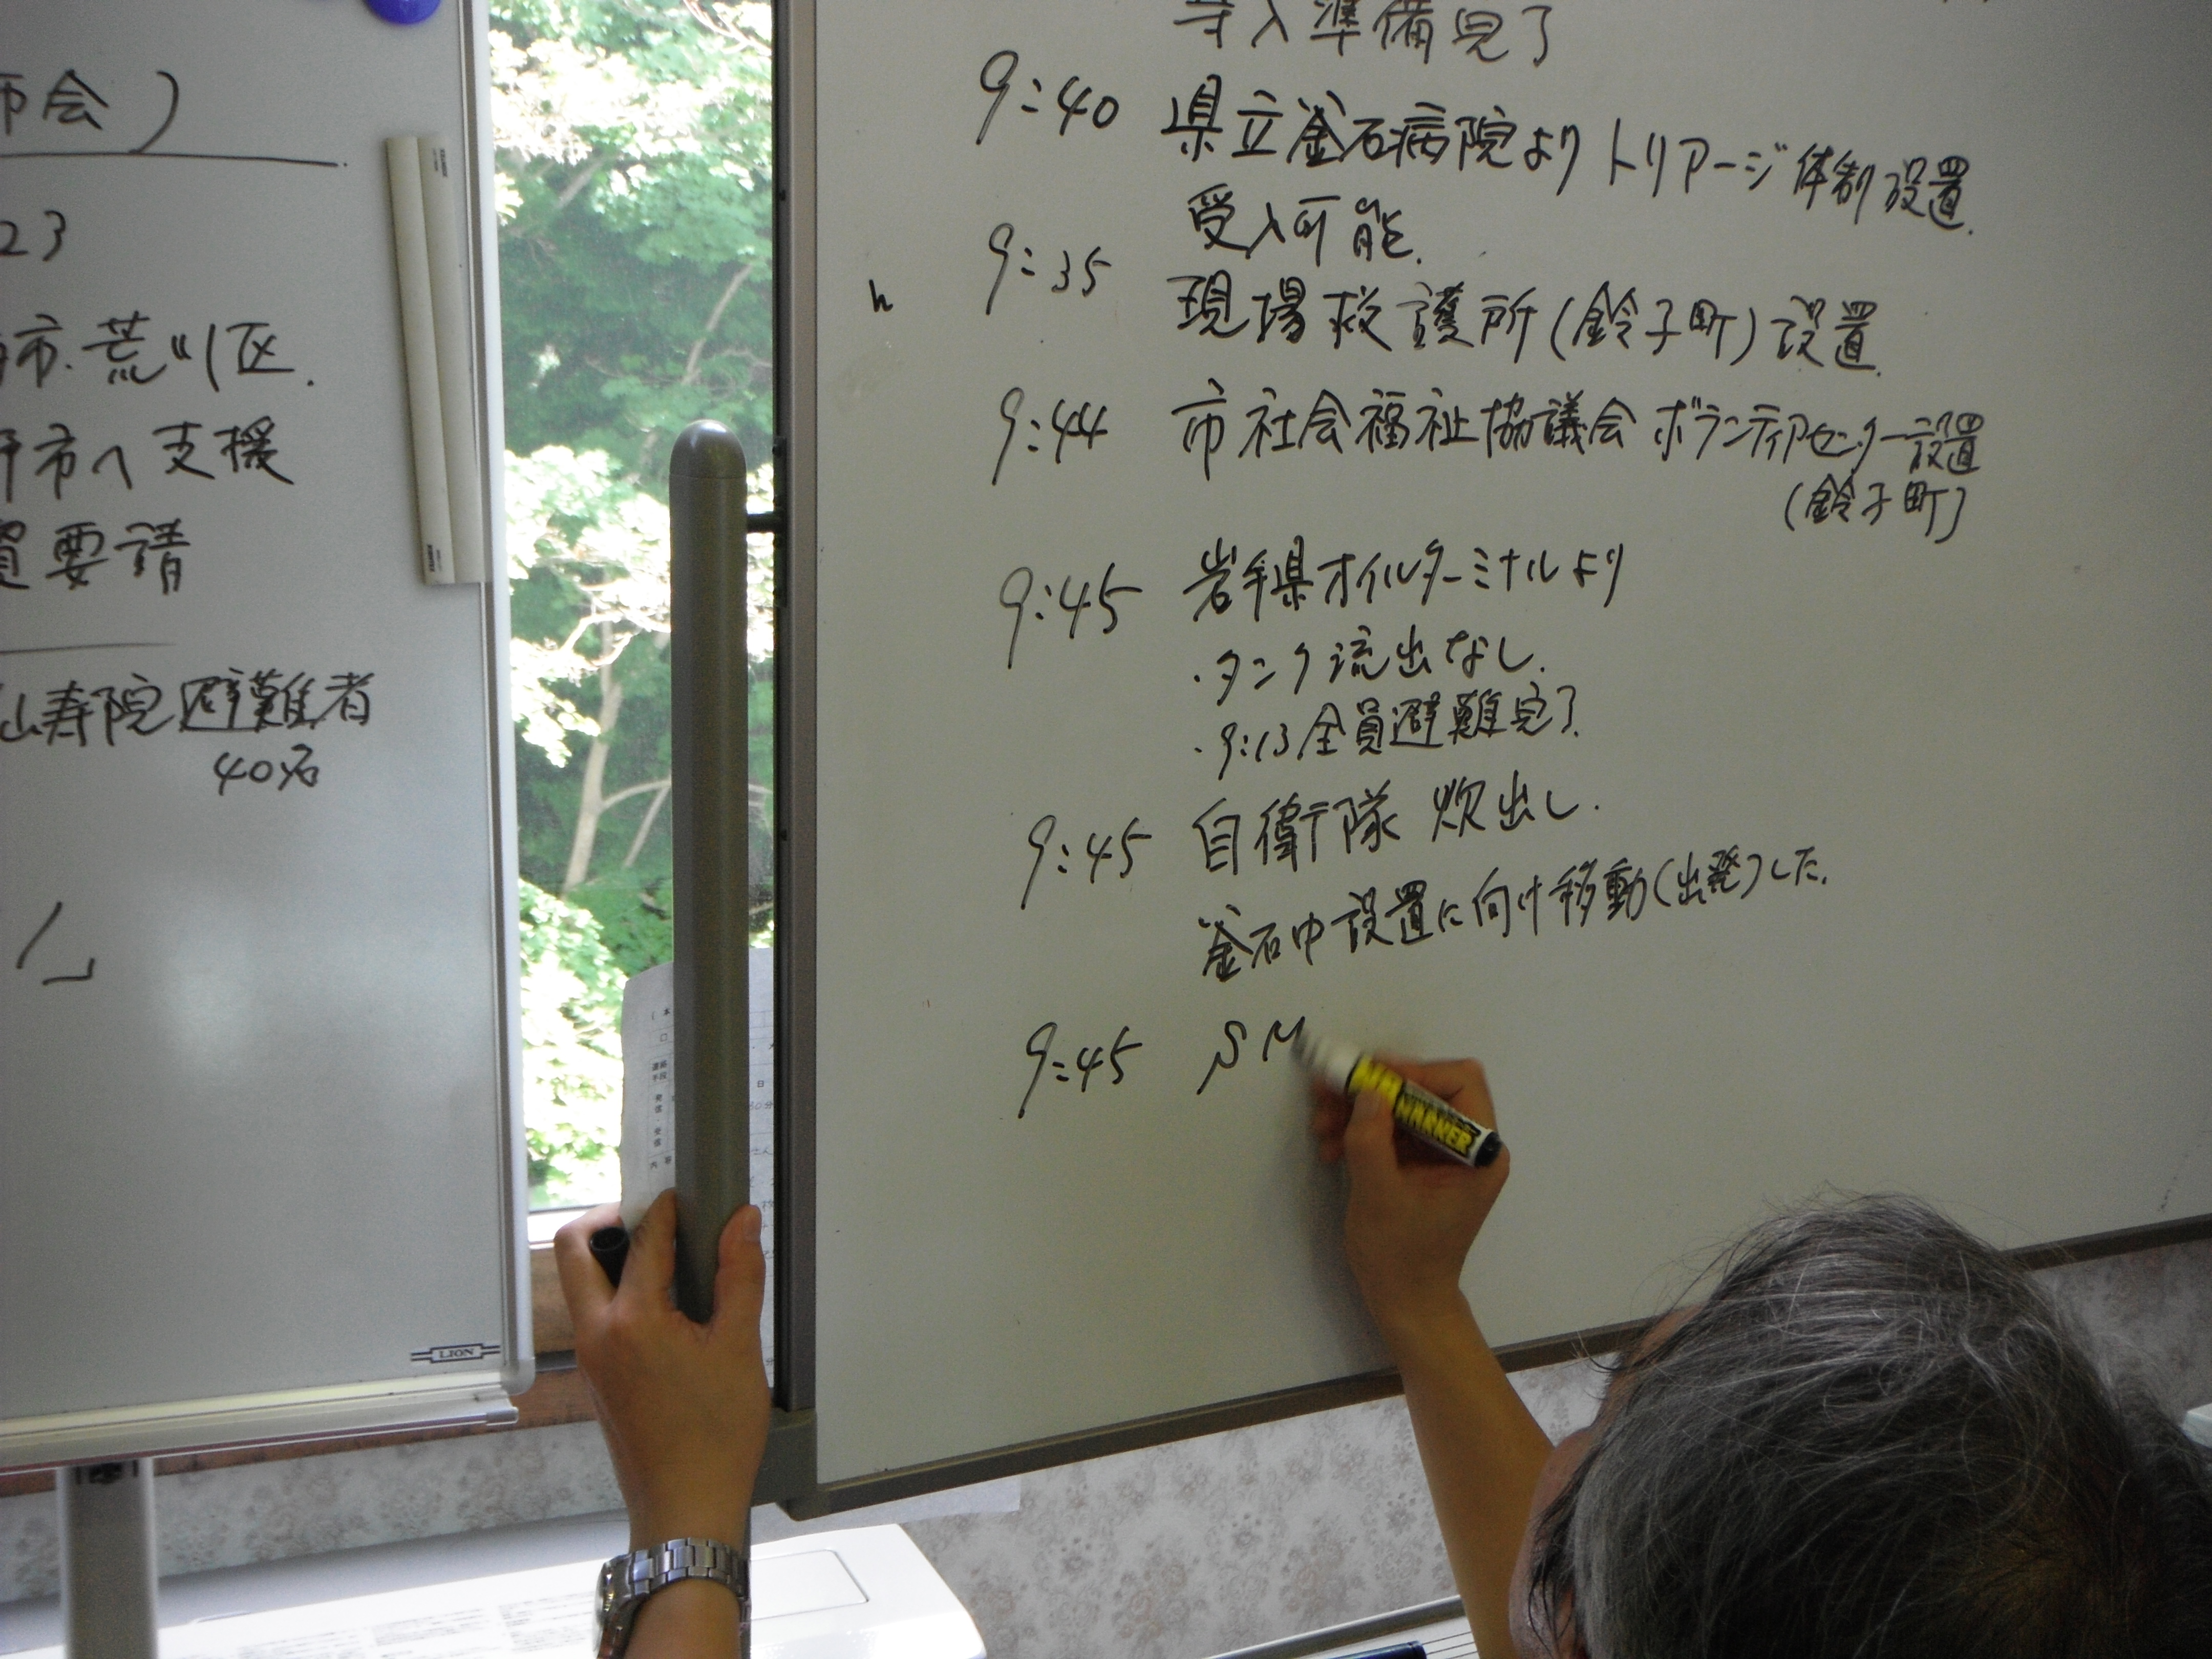 市会)
23
市・荒川区.
市へ支援
要請
山寿院避難者
40名
LION
準備完了
9:40 県立釜石病院よりトリアージ体制設置.
受入可能.
9:35 現場救護所(鈴子町)設置.
9:44 市社会福祉協議会 ボランティアセンター設置
(鈴子町)
9:45 岩手県オイルターミナルより
・タンク流出なし.
・9:13全員避難完了.
9:45 自衛隊 炊出し.
釜石中設置に向け移動(出発)した.
9:45 SM
MARKER